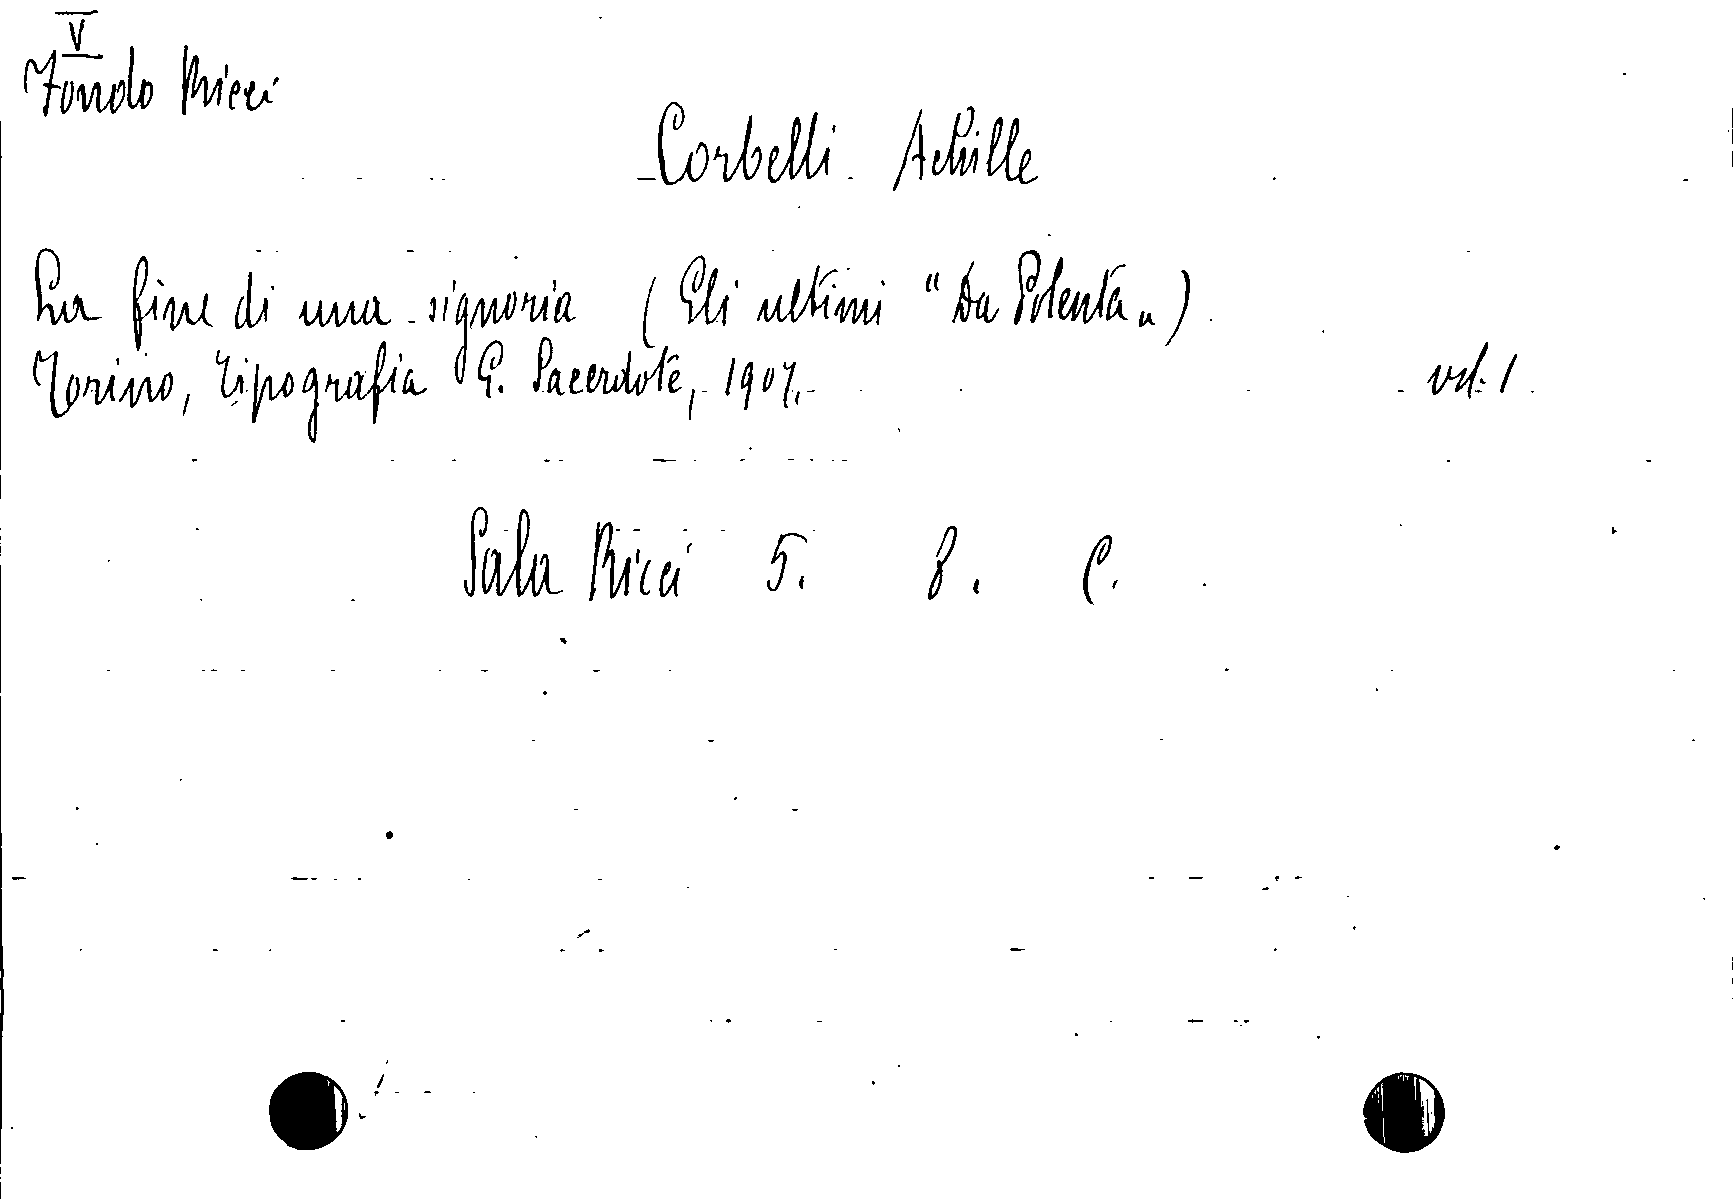 V
Fondo Ricci
Corbelli Achille
La fine di una signoria (Gli ultimi "Da Polenta„)
Torino, Tipografia G. Sacerdote, 1907.
vol. 1
Sala Ricci 5. 8. C.